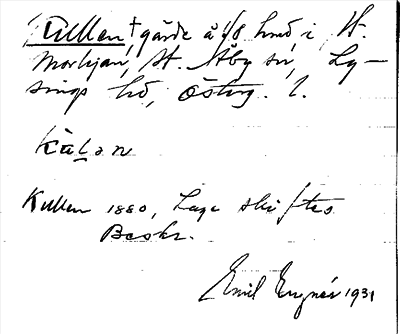 Kullen † gärde å 1/8 hmd, i St.
Morkjan, St. Åby sn, Ly-
sings hd, Österg. l.
Kullen 1880, Laga skiftes
Beskr.
Emil Eugnér 1931